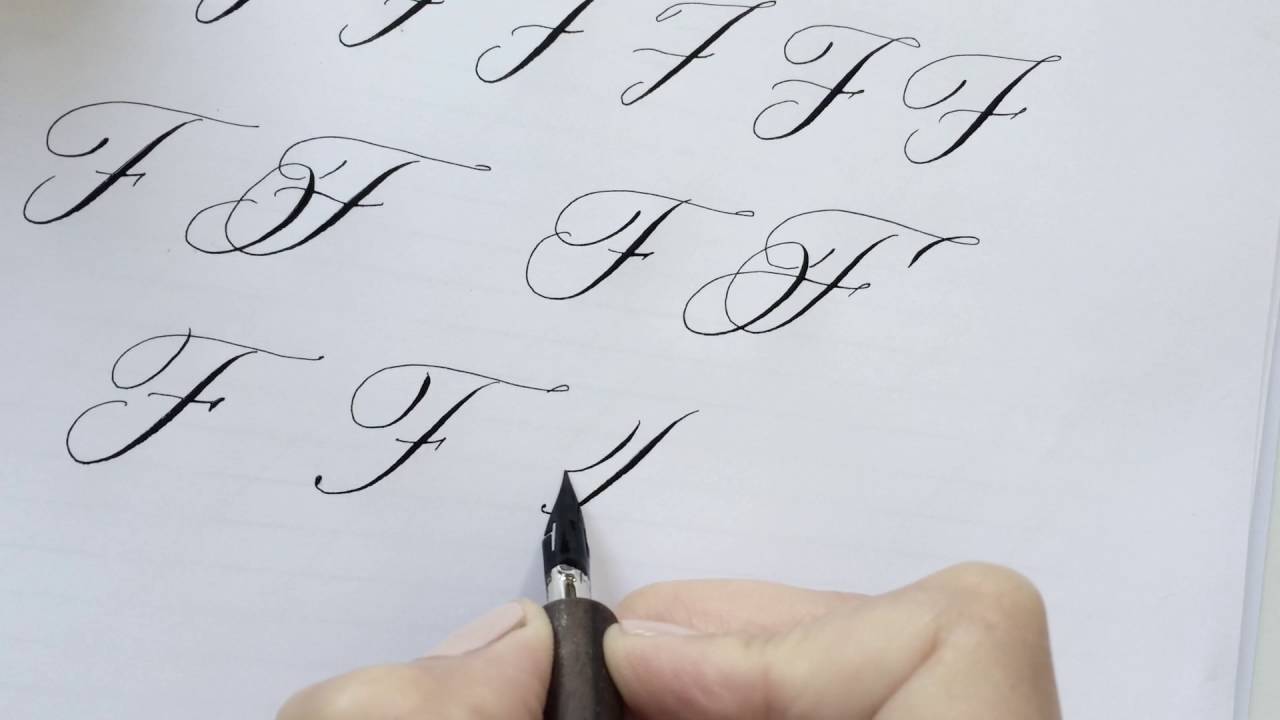 F F F F F F
F F F F
F F